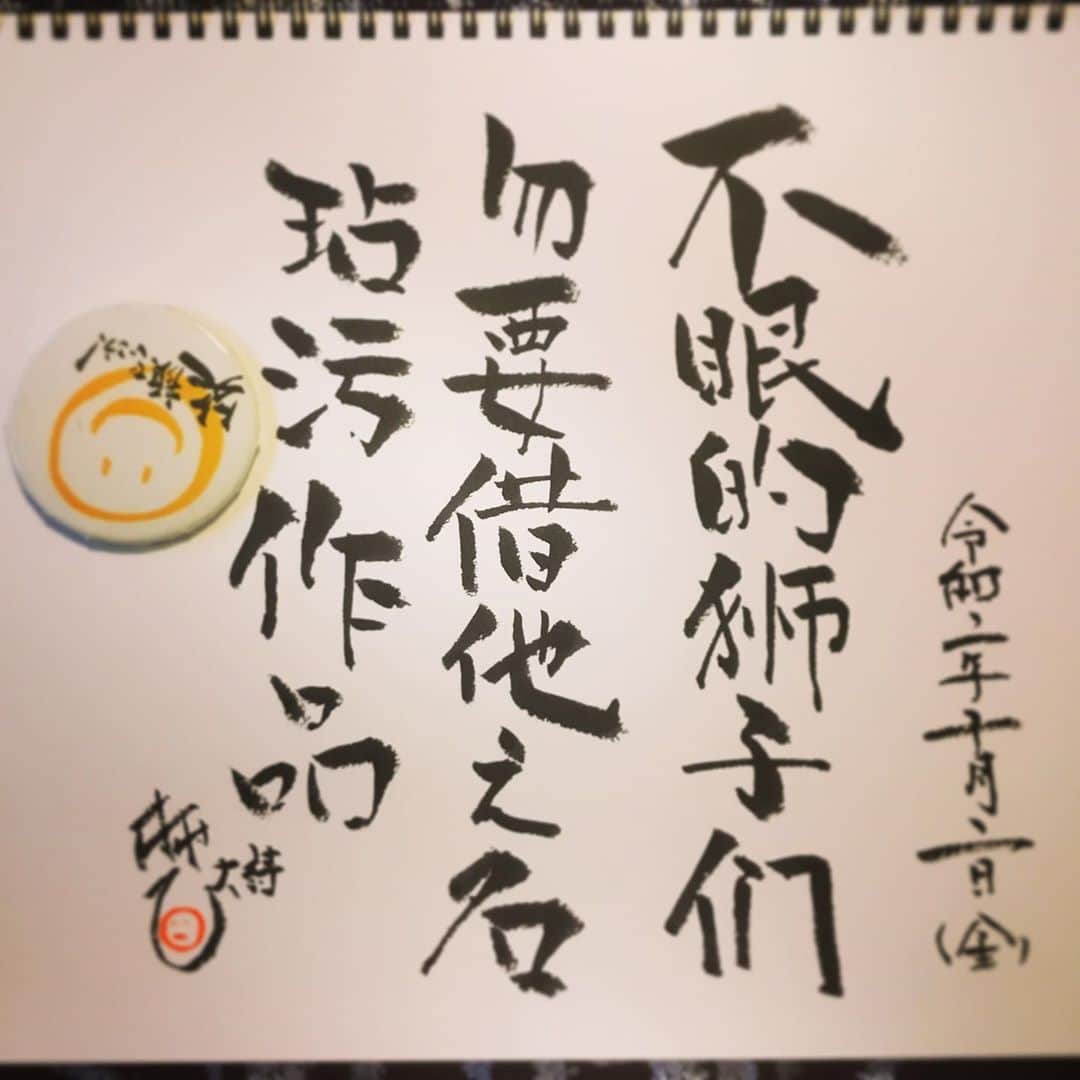 令和二年十月二日(金)
不眠的狮子们
勿要借他之名
玷污作品
大将